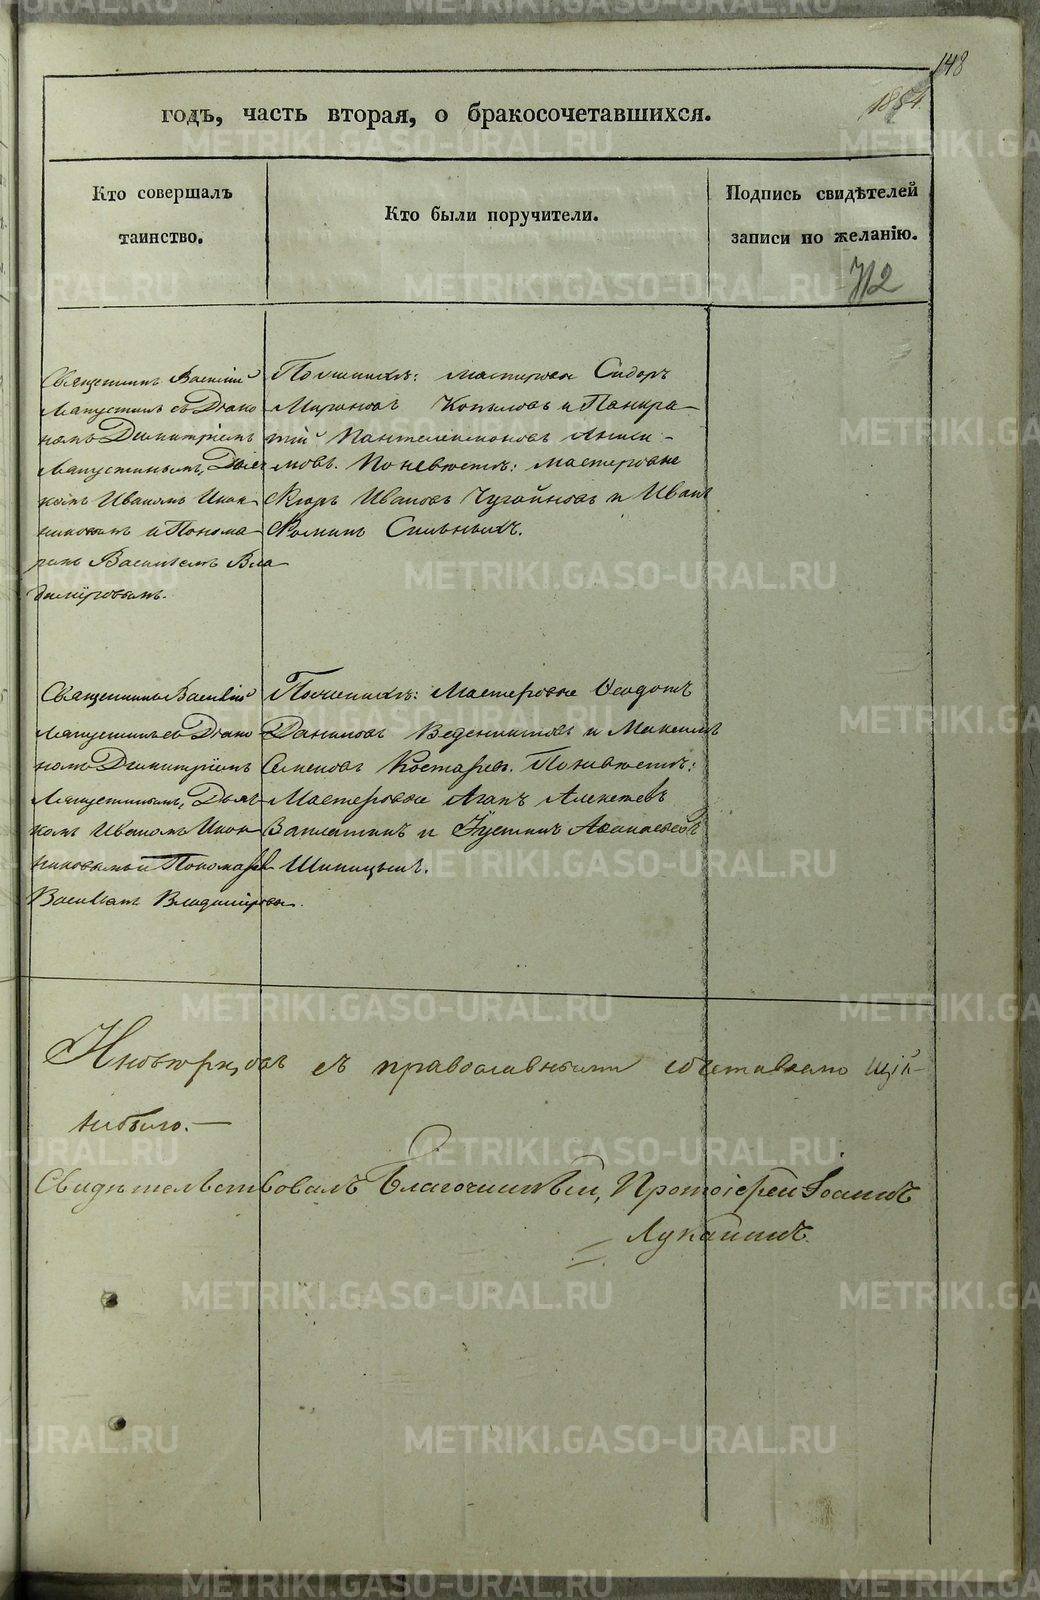 148
1854.
годъ, часть вторая, о бракосочетавшихся.
Кто совершалъ
таинство.
Кто были поручители.
Подпись свидѣтелей
записи по желанію.
712
Священникъ Василій
съ Діако
номъ Димитріемъ
Дьяч
комъ Иваномъ Икон
никовымъ и Понома
ремъ Василіемъ Вла
диміровымъ.
По женихѣ: мастеровые Сидоръ
Мироновъ Копыловъ и Панкра-
тій Пантелеимоновъ Аниси-
мовъ. По невѣстѣ: мастеровые
Ивановъ Чугайновъ и Иванъ
Ѳоминъ Сильныхъ.
Священникъ Василій
съ Діако
номъ Димитріемъ
Дьяч
комъ Иваномъ Икон
никовымъ и Пономаре
Василіемъ Владиміровы.
По женихѣ: Мастеровые Ѳедотъ
Даниловъ Веденниковъ и Максимъ
Семеновъ Костаревъ. По невѣстѣ:
Мастеровые Агапъ Алексѣевъ
Заплатинъ и Іустинъ Аѳанасьевъ
Шипицынъ.
Иновѣрцовъ съ православными сочетавшихся
небыло.—
Свидѣтельствовалъ Благочинный, Протоіерей Іоаннъ
Луканинъ.
METRIKI.GASO-URAL.RU